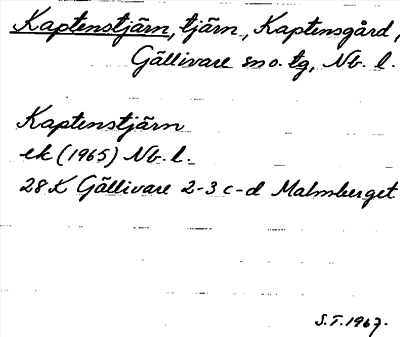 Kaptenstjärn, tjärn, Kaptensgård,
Gällivare sn o. tg, Nb. l.
Kaptenstjärn
ek (1965) Nb. l.
28K Gällivare 2-3 c-d Malmberget
S.T. 1967.